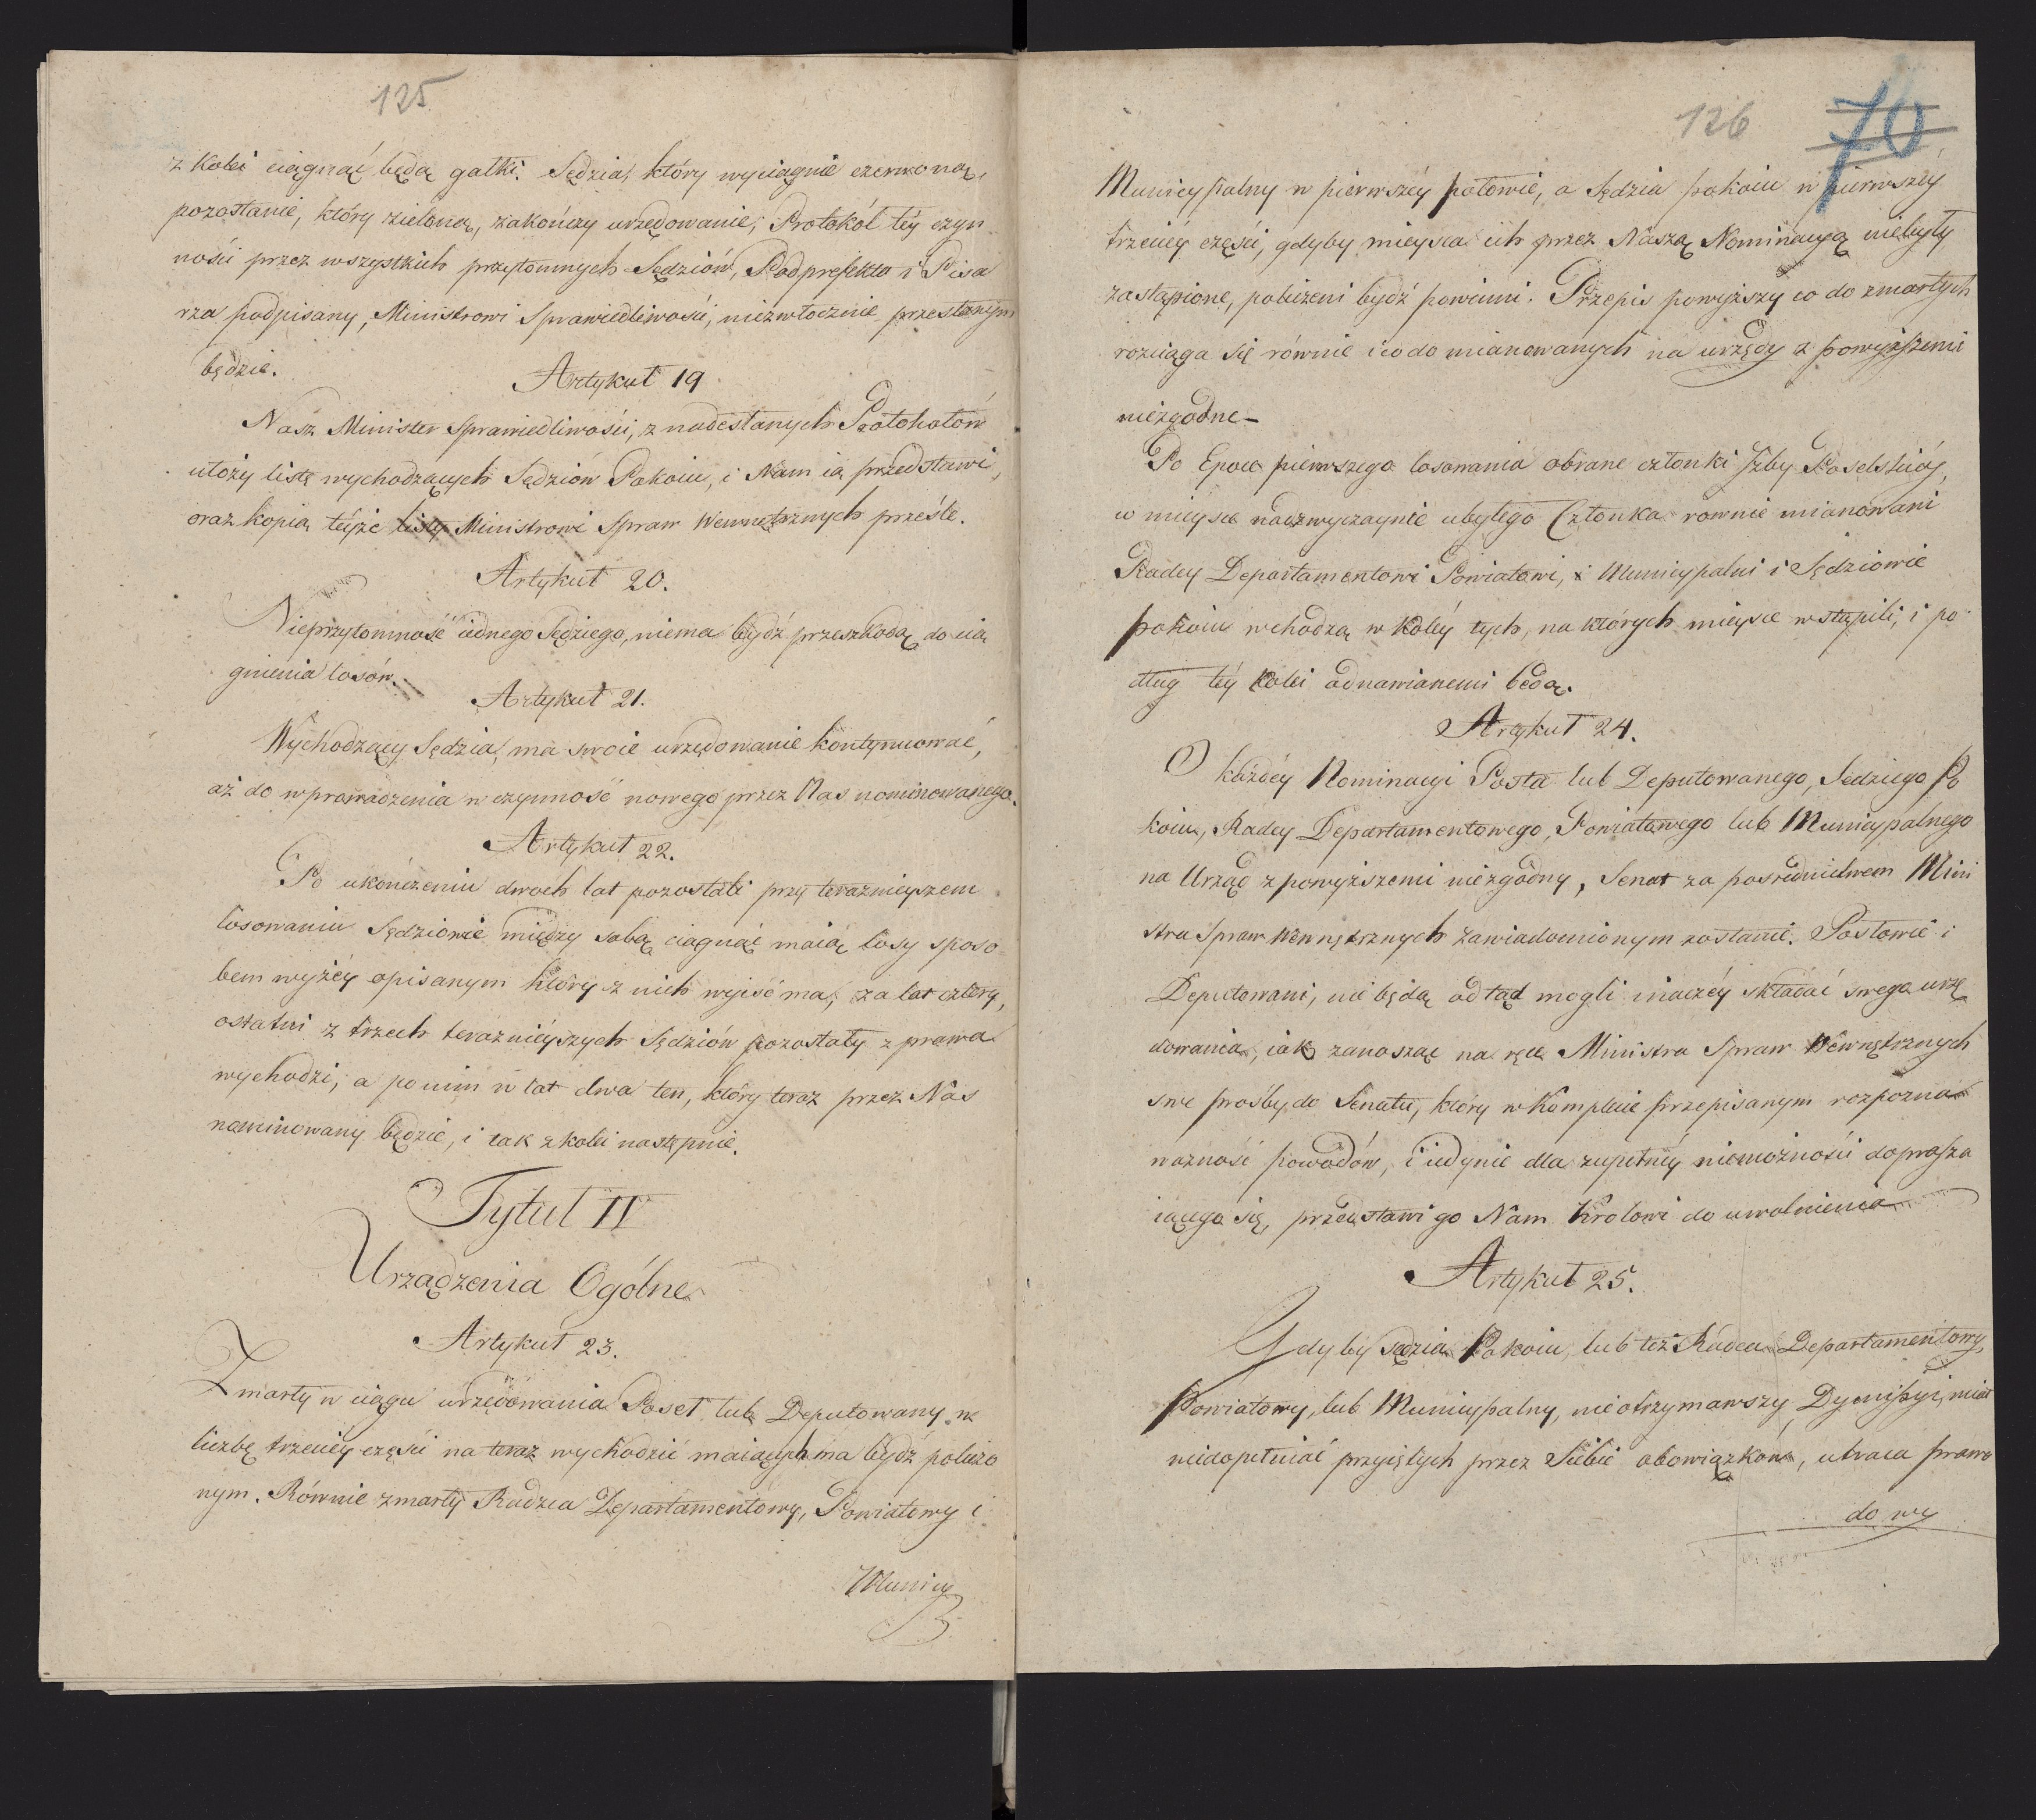 125
z kolei ciągnąć będą gałki. Sędzia, który wyciągnie czerwoną,
pozostanie, który zieloną, zakończy urzędowanie; Protokół téy czyn
ności przez wszystkich przytomnych Sędziów, Podprefekta i Pisa
rza podpisany, Ministrowi Sprawiedliwości, niezwłocznie przesłanym
będzie.
Artykuł 19
Nasz Minister Sprawiedliwości, z nadesłanych Protokołów
ułoży listę wychodzących Sędziów Pokoiu, i Nam ią przedstawi,
oraz kopią téyże listy Ministrowi Spraw Wewnętrznych prześle.
Artykuł 20.
Nieprzytomność iednego Sędziego, niema bydź przeszkodą do cią
gnienia losów.
Artykuł 21.
Wychodzący Sędzia, ma swoie urzędowanie kontynuować,
aż do wprowadzenia w czynność nowego przez Nas nominowanego.
Artykuł 22.
Po ukończeniu dwóch lat pozostali przy teraznieyszem
losowaniu Sędziowie między sobą ciągnąć maią losy sposo
bem wyżéy opisanym który z nich wyiść ma, za lat cztery,
ostatni z trzech teraznieyszych Sędziów pozostały z prawa
wychodzi, a po nim w lat dwa ten, który teraz przez Nas
nominowany będzie, i tak z kolei następnie.
Tytuł II
Urządzenia Ogólne
Artykuł 23.
Zmarły w ciągu urzędowania Poseł lub Deputowany w
liczbę trzeciéy części na teraz wychodzić maiących ma bydź policzo
nym. Równie zmarły Radzca Departamentowy, Powiatowy i
Municy
126
70
Municypalny w pierwszéy połowie, a Sędzia pokoiu w pierwszéy
trzeciéy części, gdyby mieysca ich przez Naszą Nominacyą niebyły
zastąpione, policzeni bydź powinni. Przepis powyższy co do zmarłych
rozciąga się równie i co do mianowanych na urzędy z powyższemi
niezgodne –
Po Epoce pierwszego losowania obrane członki Izby Poselskiéy,
w mieysce nadzwyczaynie ubyłego Członka równie mianowani
Radcy Departamentowi Powiatowi, i Municypalni i Sędziowie
pokoiu wchodzą w koléy tych, na których mieysce wstąpili, i po
dług téy kolei odnawianemi będą.
Artykuł 24.
O każdéy Nominacyi Posła lub Deputowanego, Sędziego Po
koiu, Radcy Departamentowego, Powiatowego lub Municypalnego
na Urząd z powyższemi niezgodny, Senat za pośrednictwem Mini
stra Spraw Wewnętrznych zawiadomionym zostanie. Posłowie i
Deputowani, nie będą odtąd mogli inaczéy składać swego urzę
dowania, iak zanosząc na ręce Ministra Spraw Wewnętrznych
swe prośby do Senatu, który w Komplecie przepisanym rozpozna
ważność powodów, i iedynie dla zupełnéy niemożności doprasza
iącego się, przedstawi go Nam Królowi do uwolnienia
Artykuł 25.
Gdyby Sędzia Pokoiu, lub też Radca Departamentowy,
Powiatowy, lub Municypalny, nie otrzymawszy Dymissyi, miał
niedopełniać przyiętych przez Siebie obowiązków, utraca prawo
do wy